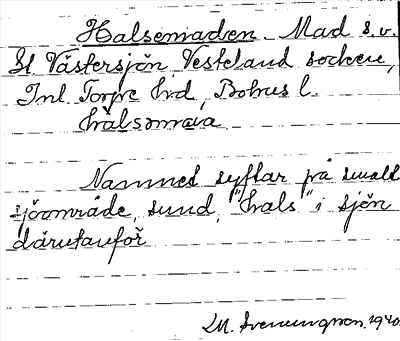 Halsemaden. Mad s.v.
St. Västersjön, Vesteland socken,
Inl. Torpe hrd, Bohus l.
hàlsəmava
Namnet syftar på smalt
sjöområde, sund, "hals" i sjön
därutanför
M. Svenungson. 1940.